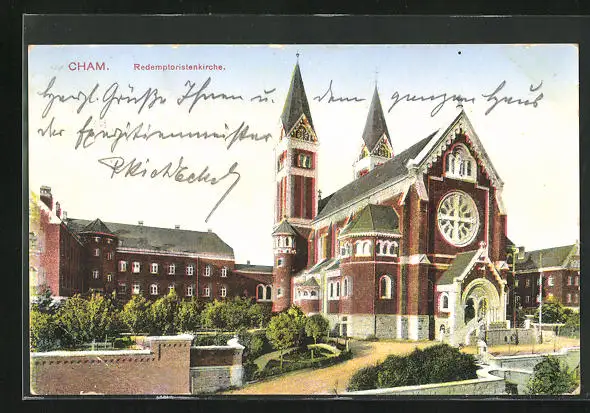 CHAM. Redemptoristenkirche.
Herzl. Grüße Ihnen u. dem ganzen Haus
der Expeditienmeister